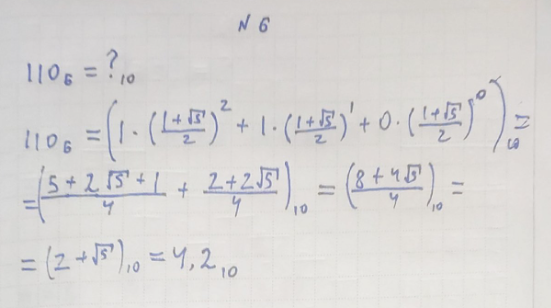 N 6
110₆ = ?₁₀
110₆ = (1·((1+√5)/2)² + 1·((1+√5)/2)¹ + 0·((1+√5)/2)⁰)₁₀ =
= ((5+2√5+1)/4 + (2+2√5)/4)₁₀ = ((8+4√5)/4)₁₀ =
= (2+√5)₁₀ = 4,2₁₀